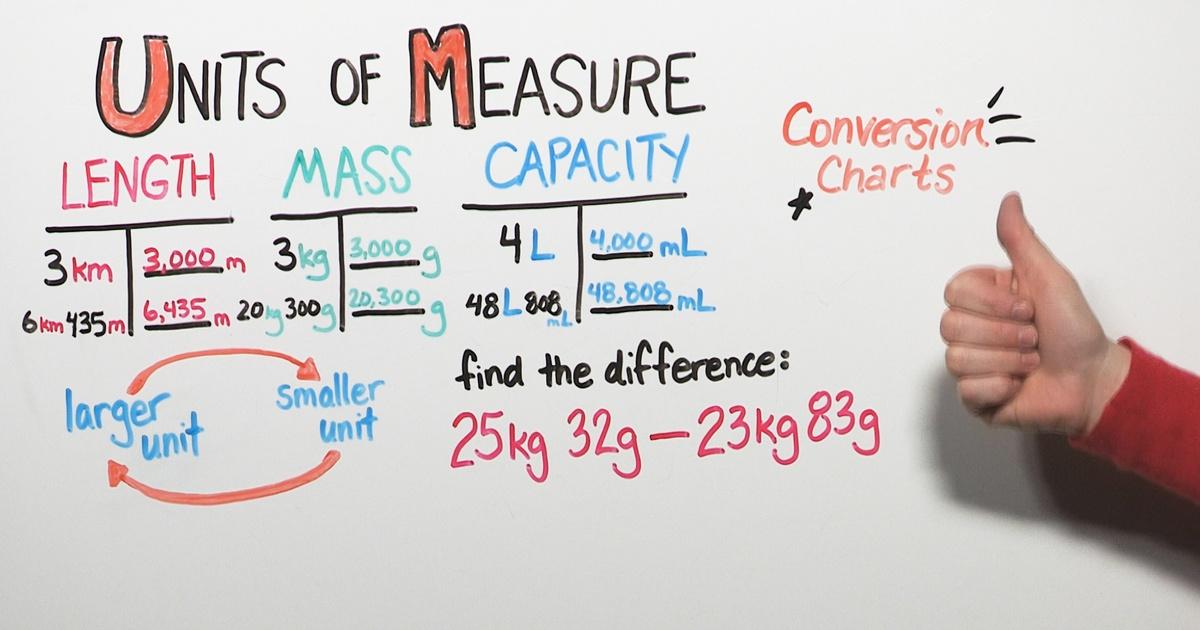 UNITS OF MEASURE
LENGTH
3km 3,000 m
6km 435m 6,435 m
MASS
3kg 3,000 g
20kg 300g 20,300 g
CAPACITY
4L 4,000 mL
48L 808mL 48,808 mL
Conversion
Charts
*
larger
unit
smaller
unit
find the difference:
25kg 32g – 23kg 83g